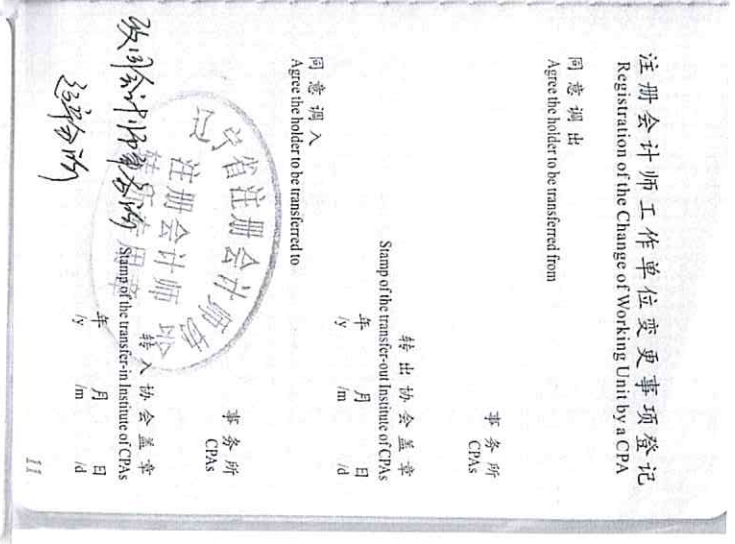 注册会计师工作单位变更事项登记
Registration of the Change of Working Unit by a CPA
同意调出
Agree the holder to be transferred from
事务所
CPAs
转出协会盖章
Stamp of the transfer-out Institute of CPAs
年 月 日
/y /m /d
同意调入
Agree the holder to be transferred to
事务所
CPAs
辽宁省注册会计师协
注册会计师
转所专用章
转入协会盖章
Stamp of the transfer-in Institute of CPAs
年 月 日
/y /m /d
致同会计师事务所
辽宁分所
11